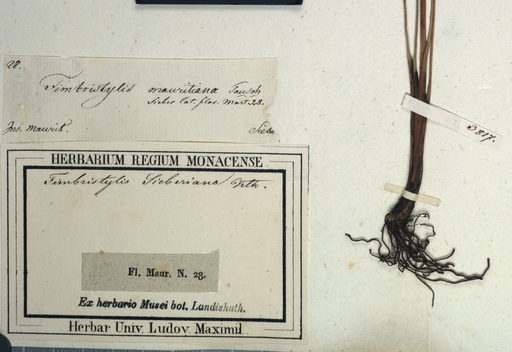 28.
Fimbristylis mauritiana Tausch
Sieber Cat. flor. Maur. 28.
Ins. maurit. Siebe
3817.
HERBARIUM REGIUM MONACENSE.
Fimbristylis Sieberiana Kth.
Fl. Maur. N. 28.
Ex herbario Musei bot. Landishuth.
Herbar Univ. Ludov. Maximil.